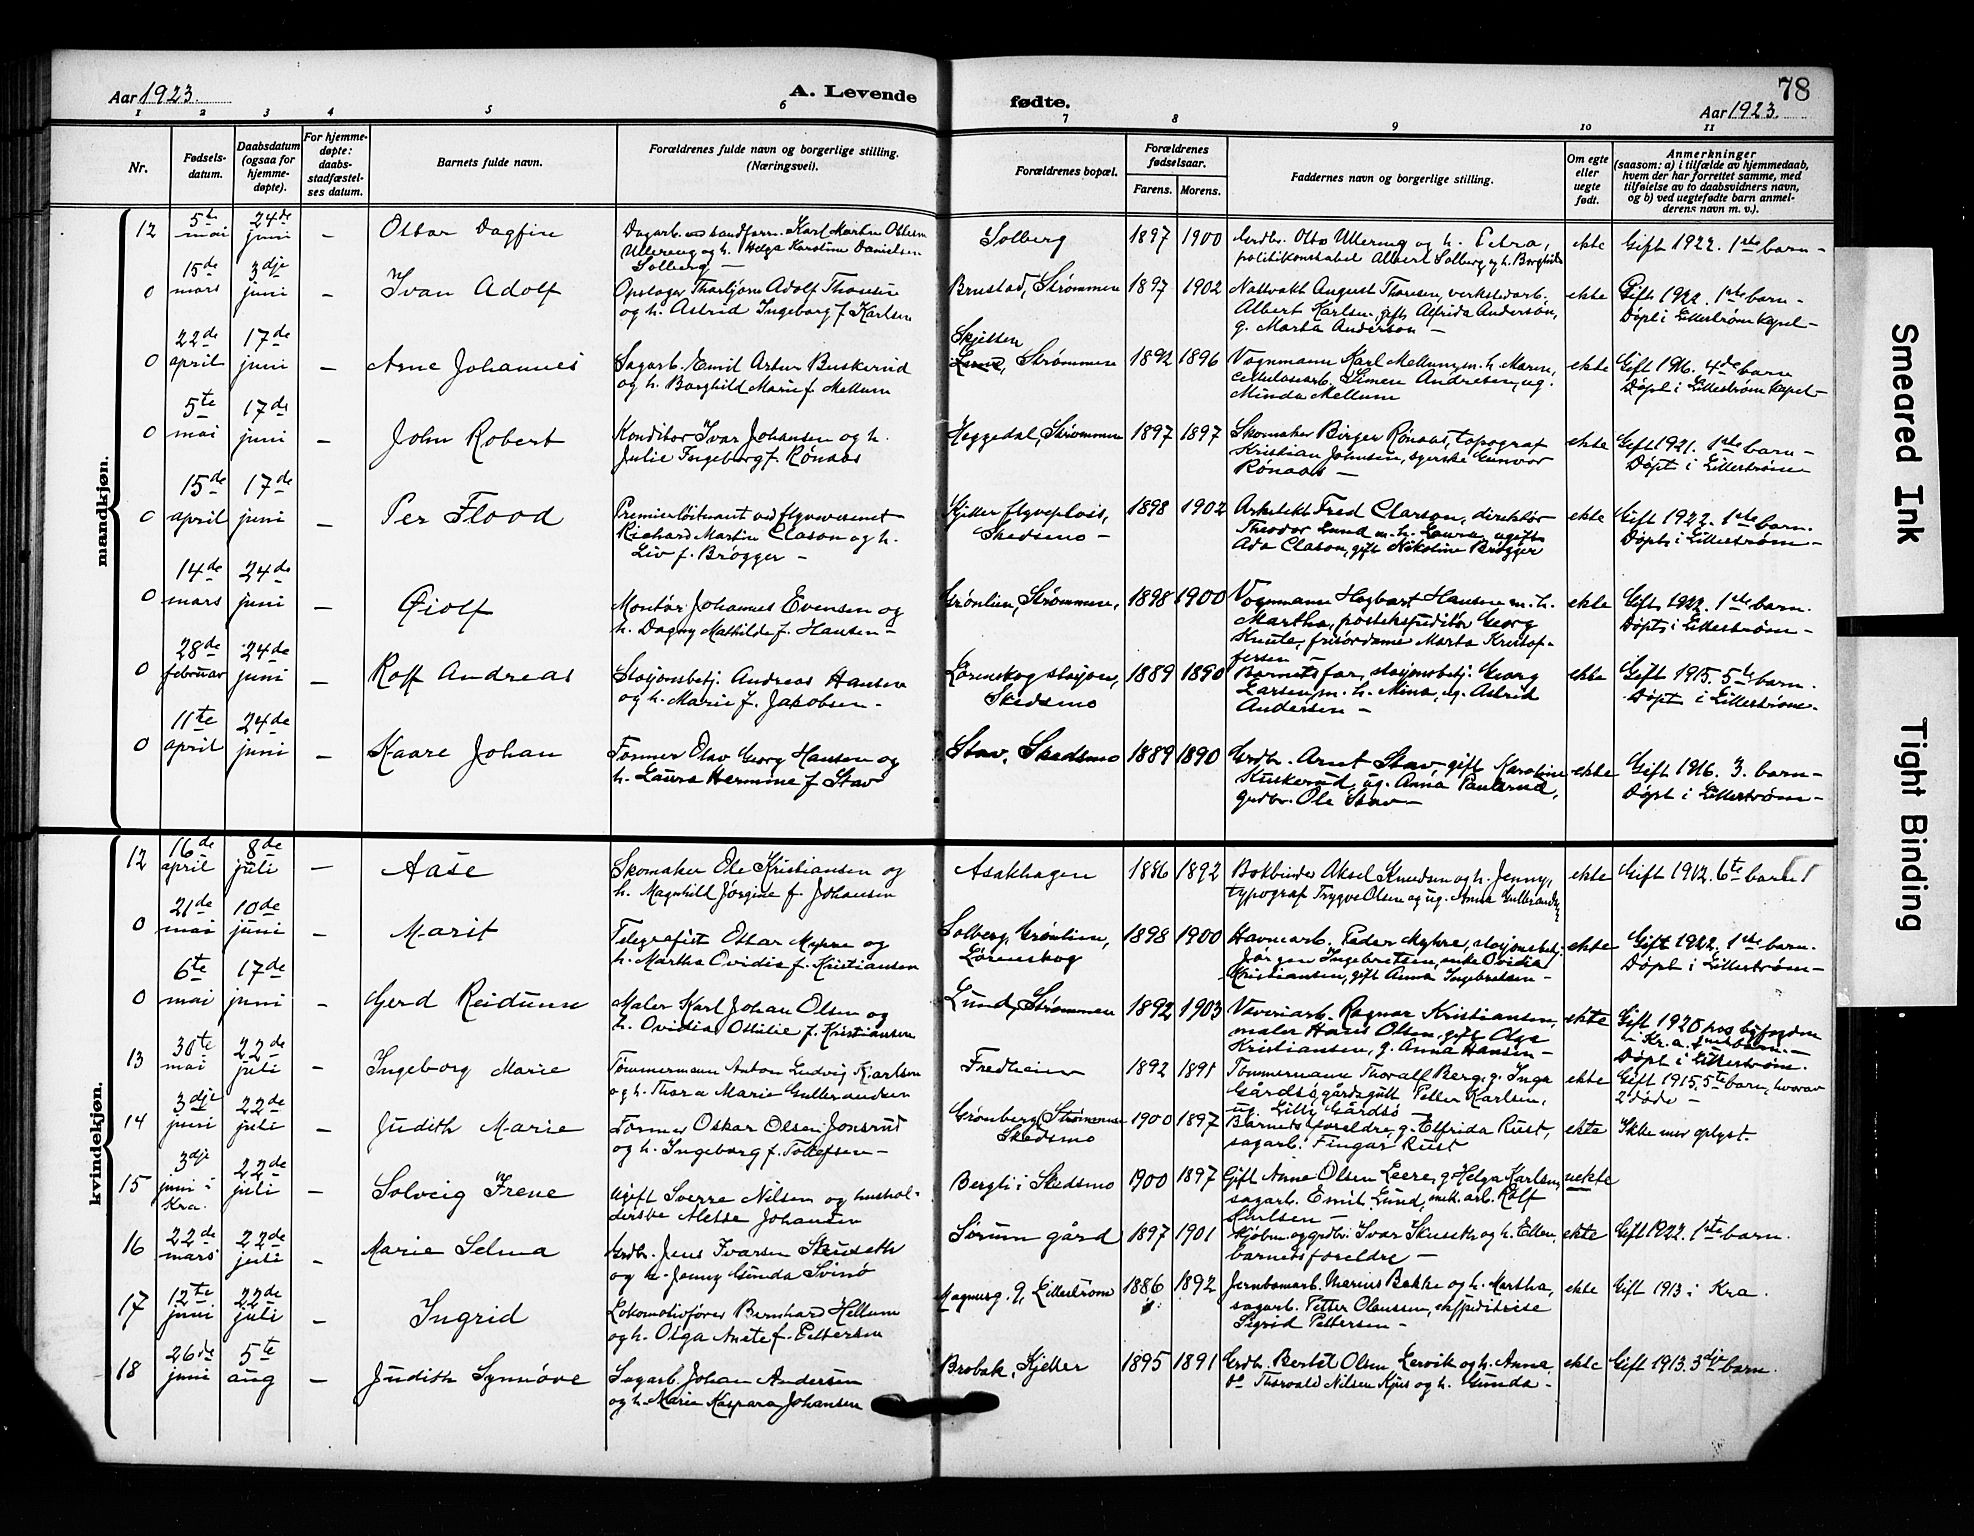 Aar 1923.
A. Levende
fødte.
78
Aar 1923.
1 2 3 4 5 6 7 8 9 10 11
Nr.
Fødsels-
datum.
Daabsdatum
(ogsaa for
hjemme-
døpte).
For hjemme-
døpte:
daabs-
stadfæstel-
ses datum.
Barnets fulde navn.
Forældrenes fulde navn og borgerlige stilling.
(Næringsvei).
Forældrenes bopæl.
Forældrenes
fødselsaar.
Farens. Morens.
Faddernes navn og borgerlige stilling.
Om egte
eller
uegte
født.
Anmerkninger
(saasom: a) i tilfælde av hjemmedaab,
hvem der har forrettet samme, med
tilføielse av to daabsvidners navn,
og b) ved uegtefødte barn anmel-
derens navn m. v.).
mandkjøn.
12 5te mai 24de juni – Ottar Dagfin
Karl Martin
Ullereng og h. Helga Karoline Danielsen
Solberg –
Solberg 1897 1900
Grdbr. Otto Ullereng og h. Petra,
politikonstabel Albert Solberg og h.
ekte
Gift 1922. 1ste barn –
0 15de mars 3dje juni – Ivan Adolf
Thorbjørn Adolf Thoresen
og h. Astrid Ingeborg f. Karlsen
Brustad, Strømmen 1897 1902
Nattvakt August Thoresen, verkstedarb.
Albert Karlsen, gift Alfrida Anderson,
g. Marta Anderson –
ekte
Gift 1922. 1ste barn –
Døpt i Lillestrøm kapel –
0 22de april 17de juni – Arne Johannes
Sagarb. Emil Artur Buskerud
og h. Borghild Marie f. Mellum
Skjetten
Strømmen 1892 1896
Vognmann Karl Mellum m. h. Maren,
cellulosearb. Simen Andresen, ug.
Minda Mellum
ekte
Gift 1916. 4de barn
Døpt i Lillestrøm kapel –
0 5te mai 17de juni – John Robert
Konditor Ivar Johansen og h.
Julie Ingeborg f. Rønaas
Heggedal, Strømmen 1897 1897
Skomaker Birger Rønaas, topograf
Kristian Johnsen, syerske Gunvor
Rønaas –
ekte
Gift 1921. 1ste barn –
Døpt i Lillestrøm
0 15de april 17de juni – Per Flood
Premierløitnant ved flyvevesenet
Richard Martin Clason og h.
Liv f. Brøgger –
Kjeller flyveplass,
Skedsmo – 1898 1902
Arkitekt Fred Clason, direktør
Theodor Lund m. h. Laura, ugift
Ada Clason, gift Nikoline Brøgger
ekte
Gift 1922. 1ste barn.
Døpt i Lillestrøm –
0 14de mars 24de juni – Øiolf
Montør Johannes Evensen og
h. Dagny Mathilde f. Hansen –
Grønlien, Strømmen, 1898 1900
Vognmann Hagbart Hansen m. h.
Martha, postekspeditør Georg
Knutle, frisørdame Marta Kristof-
fersen –
ekte
Gift 1922. 1ste barn.
Døpt i Lillestrøm –
0 28de februar 24de juni – Rolf Andreas
Stasjonsbetj. Andreas Hansen
og h. Marie f. Jakobsen –
Lørenskog stasjon,
Skedsmo 1889 1890
Barnets far, stasjonsbetj. Georg
Larsen, m. h. Mina, ug. Astrid
Andersen –
ekte
Gift 1915. 5te barn.
Døpt i Lillestrøm –
0 11te april 24de juni – Kaare Johan
Former Olav Georg Hansen og
h. Laura Hermine f. Stav
Stav, Skedsmo 1889 1890
Grdbr. Arnt Stav, gift Karoline
Kuskerud, ug. Anna Paulerud,
grdbr. Ole Stav –
ekte
Gift 1916. 3. barn –
Døpt i Lillestrøm –
kvindekjøn.
12 16de april 8de juli – Aase
Skomaker Ole Kristiansen og
h. Magnhild Jørgine f. Johansen
Asakhagen 1886 1892
Bokbinder Aksel Knudsen og h. Jenny,
typograf Trygve Olsen og ug. Anna
ekte
Gift 1912. 6te barn
0 21de mai 10de juni – Marit
Telegrafist Ottar Myhre og
h. Martha Ovidia f. Kristiansen
Solberg, Grønlien,
Lørenskog 1898 1900
Havnearb. Peder Myhre, stasjonsbetj.
Jørgen Ingebretsen, enke Ovidia
Kristiansen, gift Anna Ingebretsen –
ekte
Gift 1922. 1ste barn.
Døpt i Lillestrøm –
0 6te mai 17de juni – Gerd Reidunn
Maler Karl Johan Olsen og
h. Ovidia Ottilie f. Kristiansen
Lund, Strømmen 1892 1903
Ragnar Kristiansen,
maler Hans Olsen, gift Olga
Kristiansen, g. Anna Hansen –
ekte
Gift 1920 hos byfogden
i Kr.a.
Døpt i Lillestrøm.
13 30te mai 22de juli – Ingeborg Marie
Tømmermann Anton Ludvig Karlsen
og h. Thora Marie Gulbrandsen
Fredheim 1892 1891
Tømmermann Thoralf Berg, g. Inga
Gårdsø, gårdsgutt Petter Karlsen,
ug. Lilly Gårdsø –
ekte
Gift 1915. 5te barn, hvorav
2 døde –
14 3dje juni 22de juli – Judith Marie
Former Oskar Olsen Jonsrud
og h. Ingeborg f. Tollefsen –
Grønberg, Strømmen
Skedsmo 1900 1897
Barnets foreldre, g. Elfrida Rust,
sagarb. Fingar Rust
ekte
Ikke mer oplyst.
15 3dje juni i Kra. 22de juli – Solveig Irene
Ugift Sverre Nilsen og hushol-
derske Alette Johansen
Bergli i Skedsmo 1900 1897
Gift Anne Olsen Leere, g. Helga Karlsen,
sagarb. Emil Lund, mek. arb. Rolf
Karlsen –
uekte
16 22de mars 22de juli – Marie Selma
Grdbr. Jens Ivarsen Skuseth
og h. Jenny Gunda Svinø
Sørum gård 1897 1901
Kjøbm. og grdbr. Ivar Skuseth og h. Ellen,
barnets foreldre –
ekte
Gift 1922. 1ste barn.
17 12te juni 22de juli – Ingrid
Lokomotivfører Bernhard Hellum
og h. Olga Anete f. Pettersen
Magnusg. 9, Lillestrøm 1886 1892
Jernbanearb. Marius Bakke og h. Martha,
sagarb. Petter Olaussen, ekspeditrise
Sigrid Pettersen –
ekte
Gift 1913 i Kra.
18 26de juni 5te aug – Judith Synnøve
Sagarb. Johan Andersen
og h. Marie Kaspara Johansen
Brobak, Kjeller 1895 1891
Grdb. Bertel Olsen Lervik og h. Anna,
do Thorvald Nilsen Kjus og h. Gunda –
ekte
Gift 1913. 3dje barn.
Smeared Ink
Tight Binding